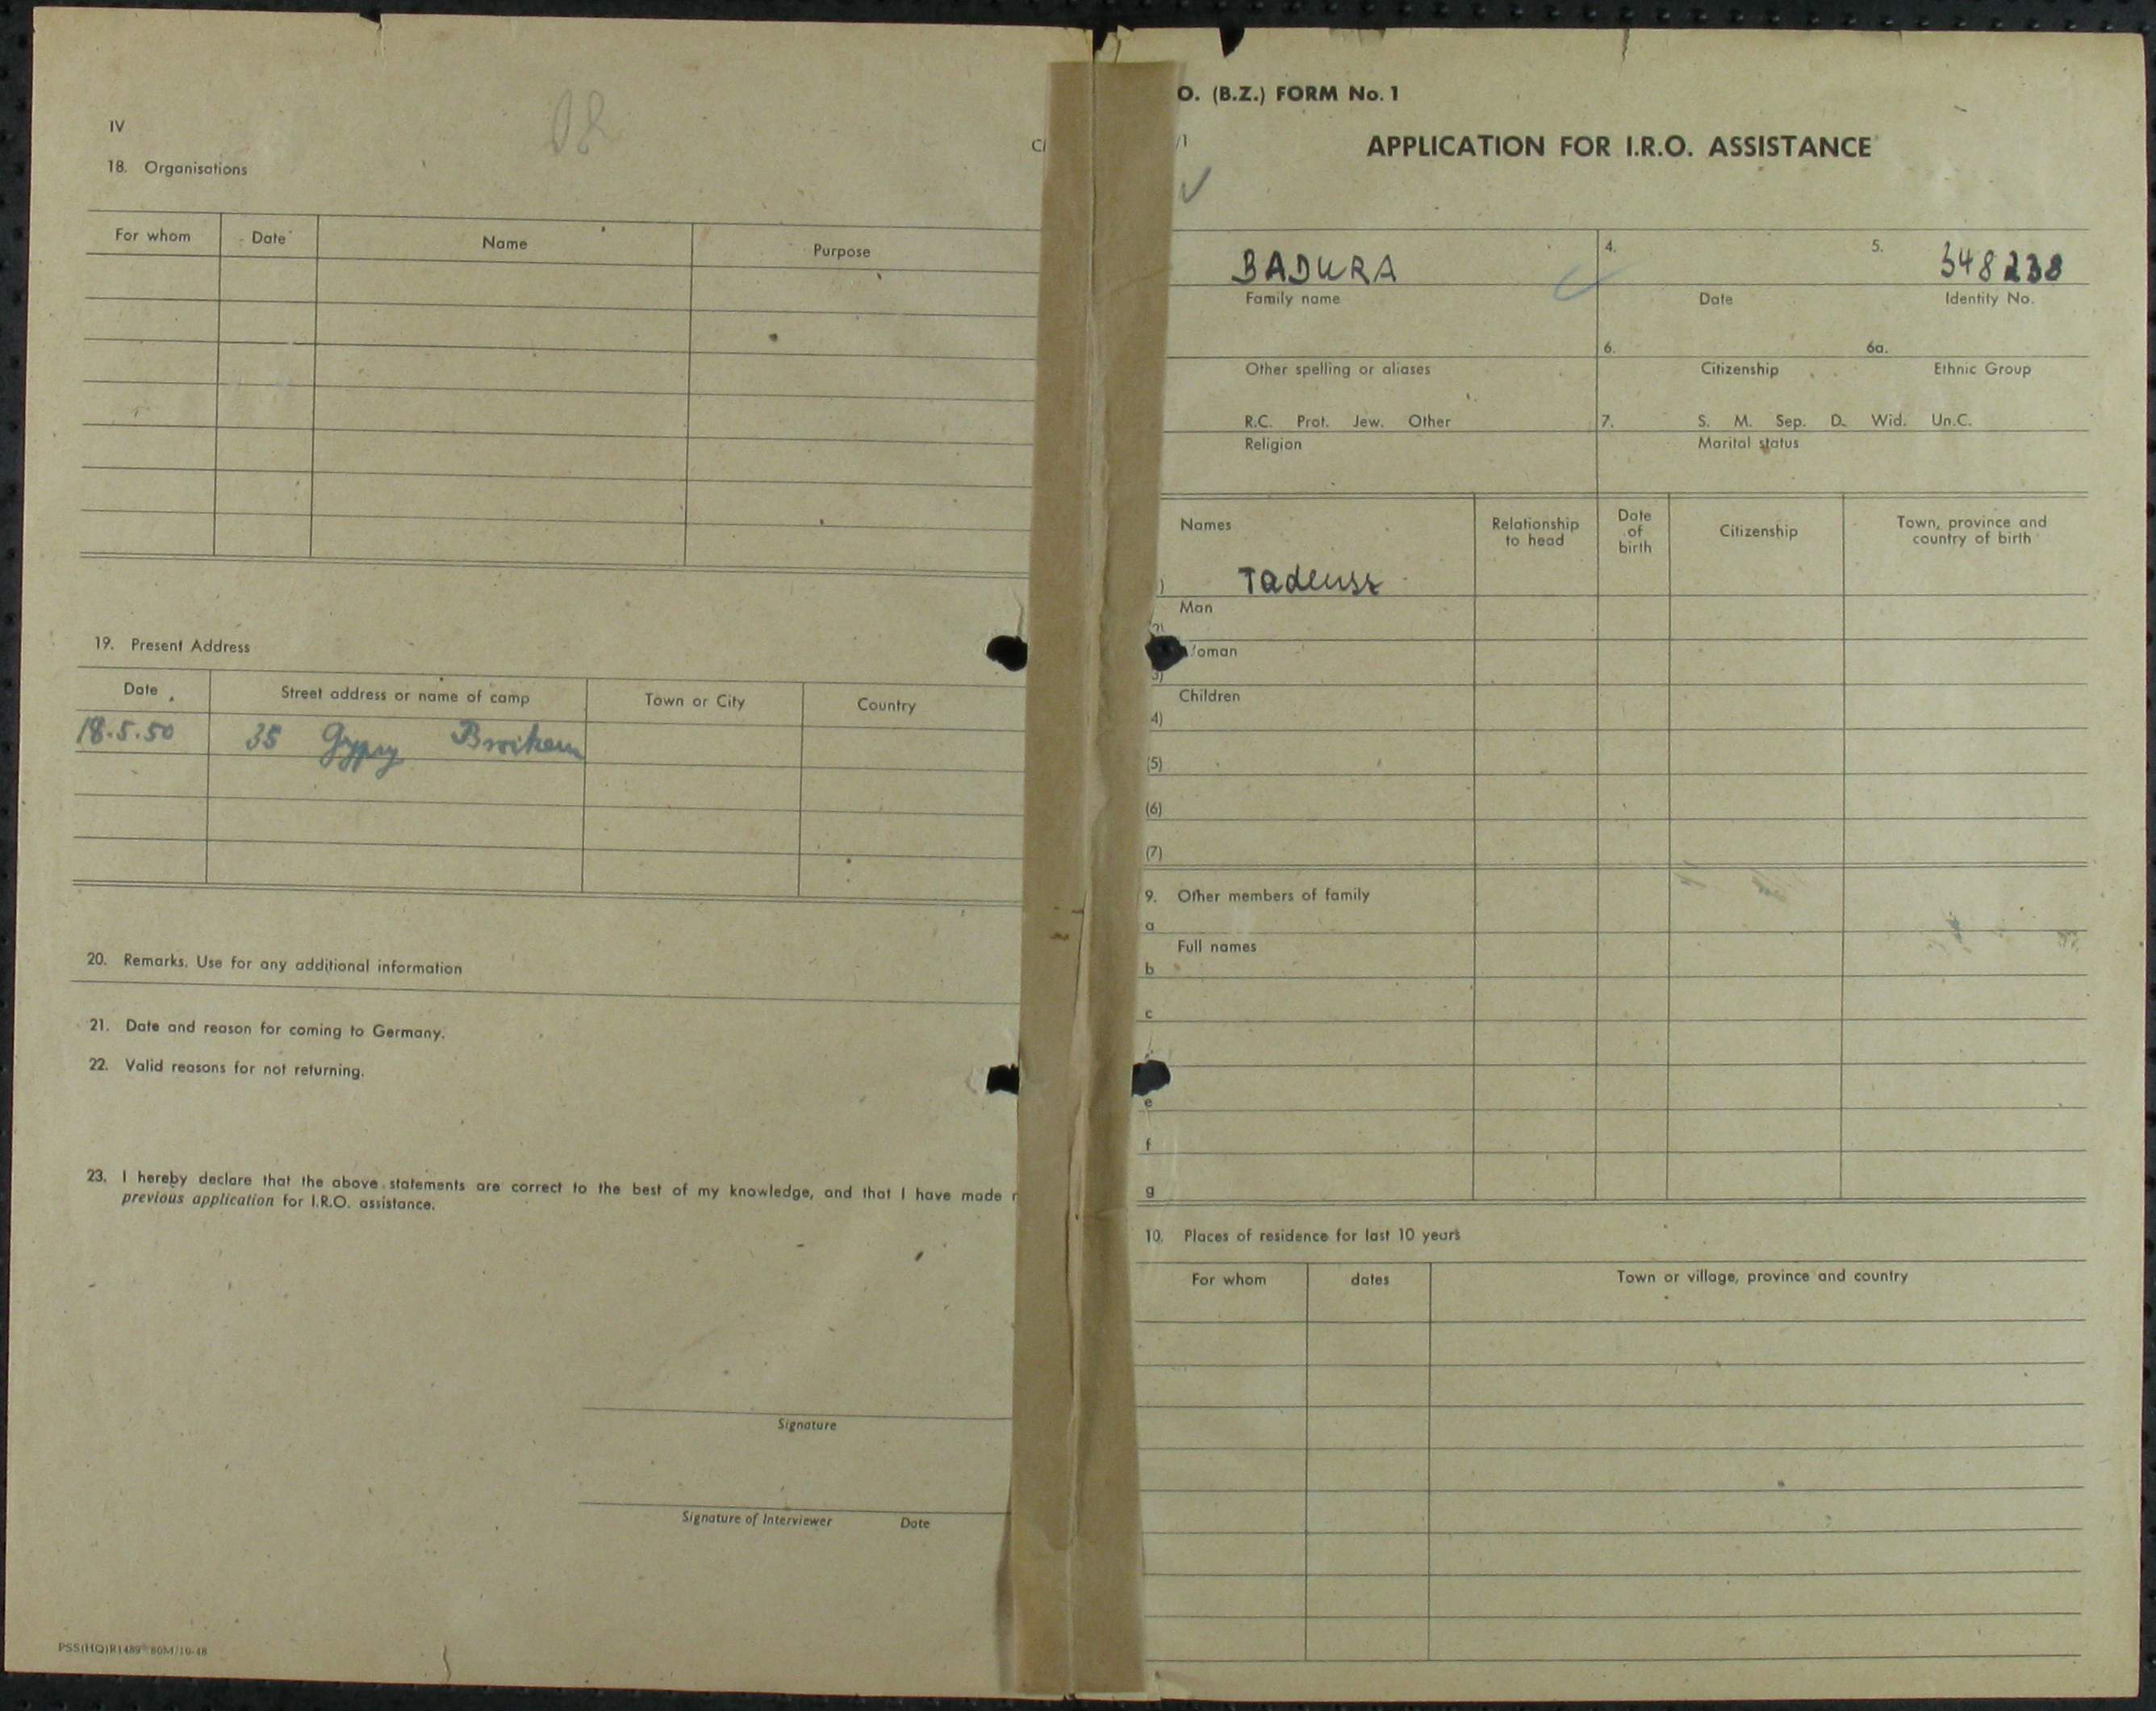 IV
18. Organisations
For whom Date Name Purpose
19. Present Address
Date Street address or name of camp Town or City Country
18.5.50 35 Gypsy
20. Remarks. Use for any additional information
21. Date and reason for coming to Germany.
22. Valid reasons for not returning.
23. I hereby declare that the above statements are correct to the best of my knowledge, and that I have made
previous application for I.R.O. assistance.
Signature
Signature of Interviewer Date
PSS(HQ)R1489 80M/10-48
O. (B.Z.) FORM No. 1
/1
APPLICATION FOR I.R.O. ASSISTANCE
BADURA 4. 5. 348238
Family name Date Identity No.
6. 6a.
Other spelling or aliases Citizenship Ethnic Group
R.C. Prot. Jew. Other 7. S. M. Sep. D. Wid. Un.C.
Religion Marital status
Names Relationship to head Date of birth Citizenship Town, province and country of birth
) Tadeusz
Man
oman
3)
Children
4)
(5)
(6)
(7)
9. Other members of family
a
Full names
b
c
e
f
g
10. Places of residence for last 10 years
For whom dates Town or village, province and country